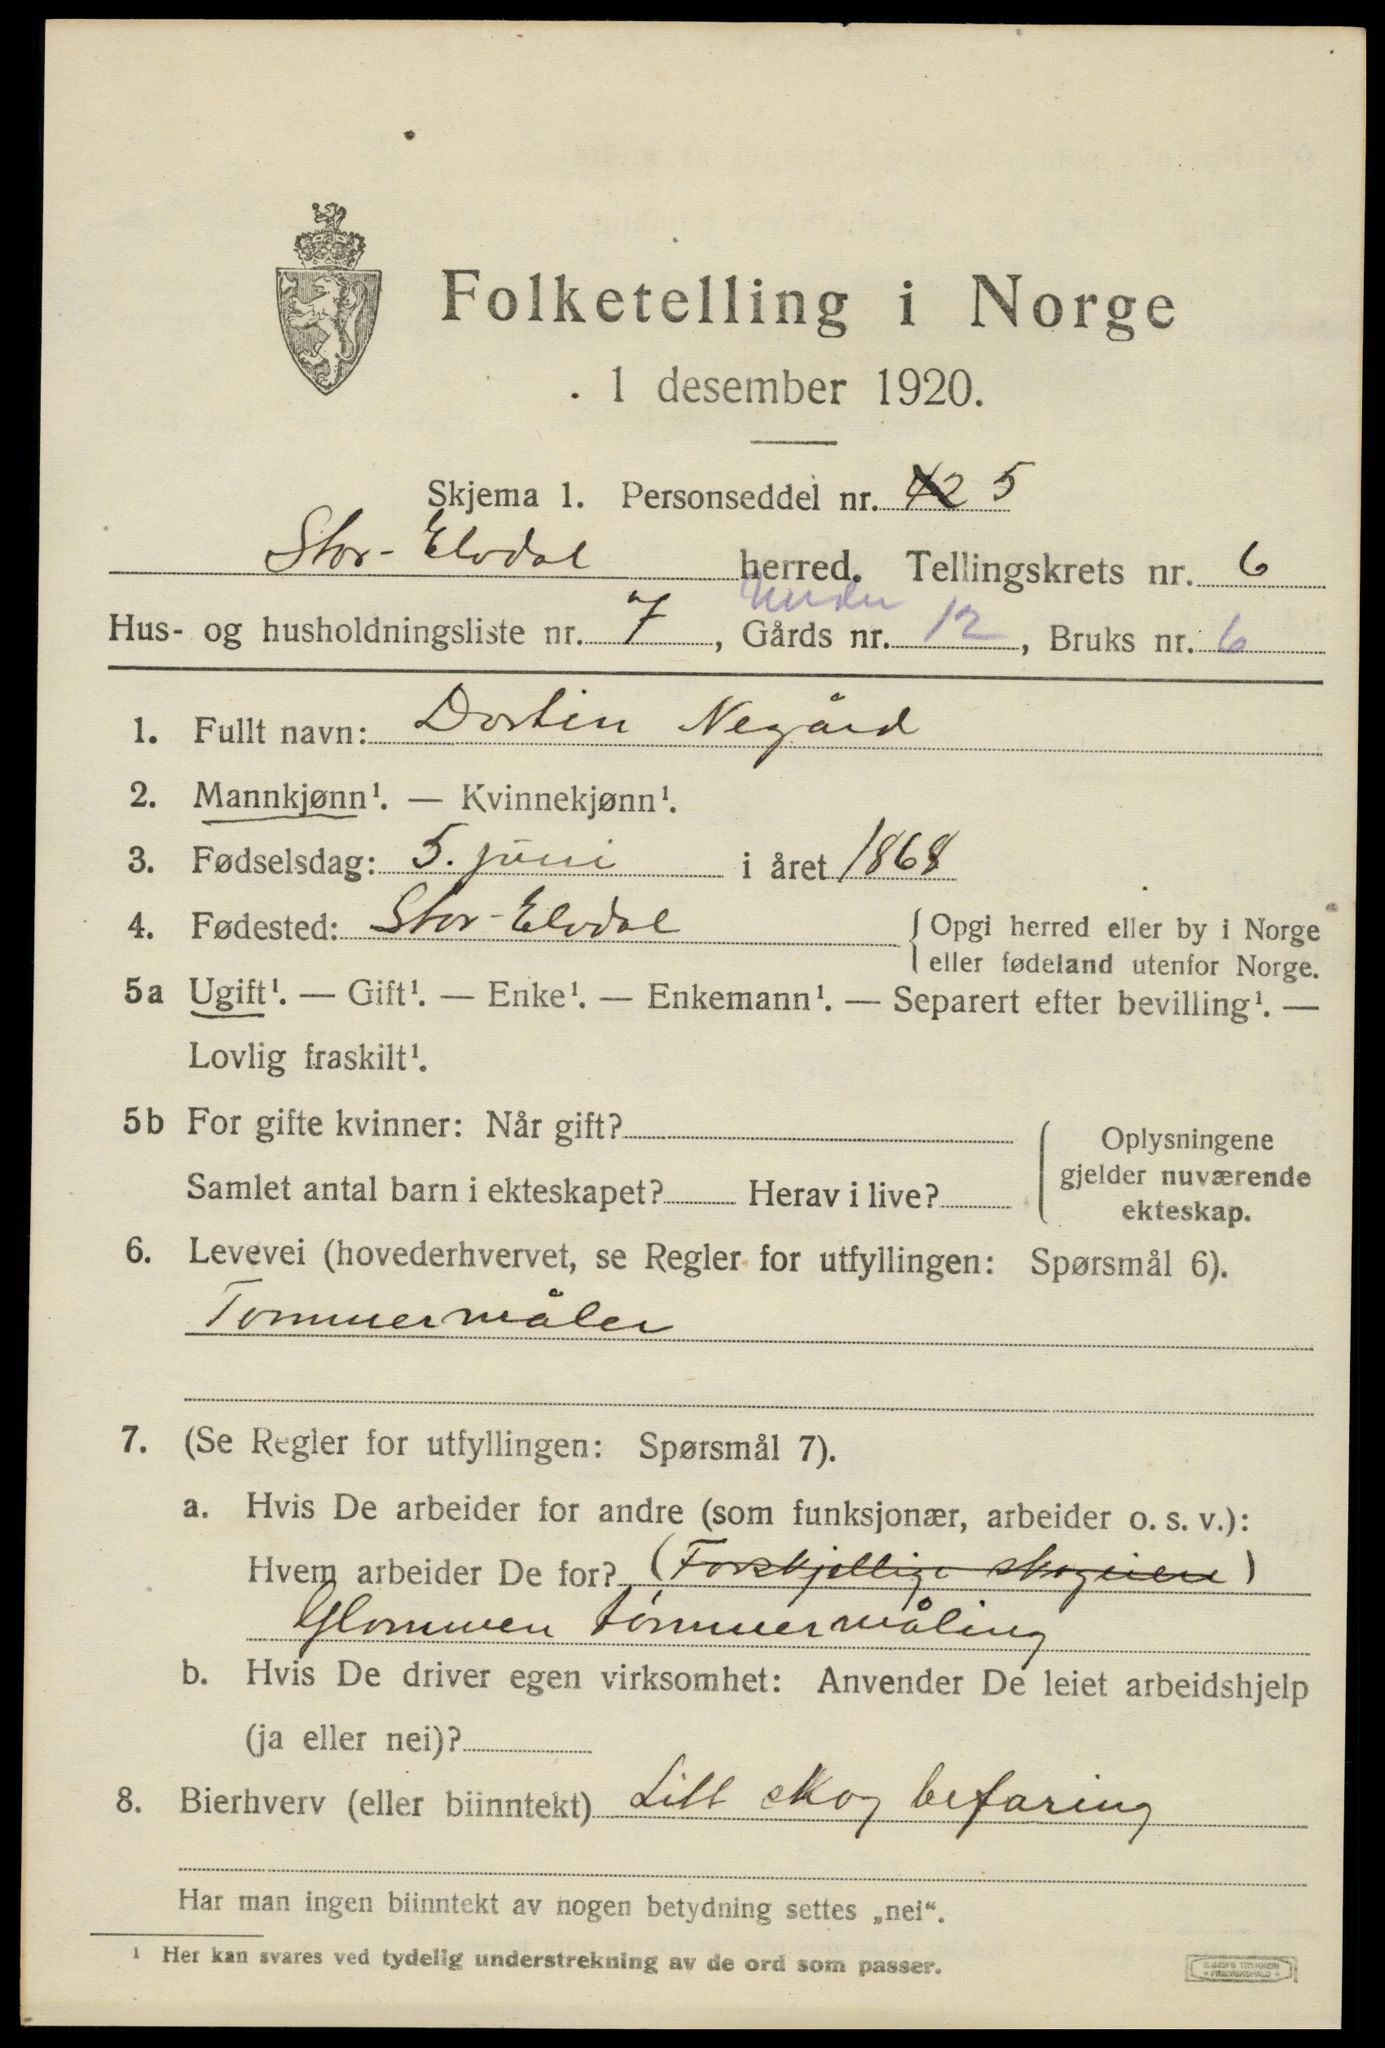 Folketelling i Norge
1 desember 1920.
Skjema 1. Personseddel nr. 5
Stor-Elvdal herred. Tellingskrets nr. 6
Under
Hus- og husholdningsliste nr. 7, Gårds nr. 12, Bruks nr. 6
1. Fullt navn: Dortin Negård
2. Mannkjønn¹. — Kvinnekjønn¹.
3. Fødselsdag: 5. juni i året 1868
4. Fødested: Stor-Elvdal { Opgi herred eller by i Norge
eller fødeland utenfor Norge.
5a Ugift¹. — Gift¹. — Enke¹. — Enkemann¹. — Separert efter bevilling¹. —
Lovlig fraskilt¹.
5b For gifte kvinner: Når gift?
Samlet antal barn i ekteskapet? Herav i live?
Oplysningene
gjelder nuværende
ekteskap.
6. Levevei (hovederhvervet, se Regler for utfyllingen: Spørsmål 6).
Tømmermåler
7. (Se Regler for utfyllingen: Spørsmål 7).
a. Hvis De arbeider for andre (som funksjonær, arbeider o. s. v.):
Hvem arbeider De for? (Forskjellige skogeiere)
Glommen tømmermåling
b. Hvis De driver egen virksomhet: Anvender De leiet arbeidshjelp
(ja eller nei)?
8. Bierhverv (eller biinntekt) Litt skog befaring
Har man ingen biinntekt av nogen betydning settes „nei“.
¹ Her kan svares ved tydelig understrekning av de ord som passer.